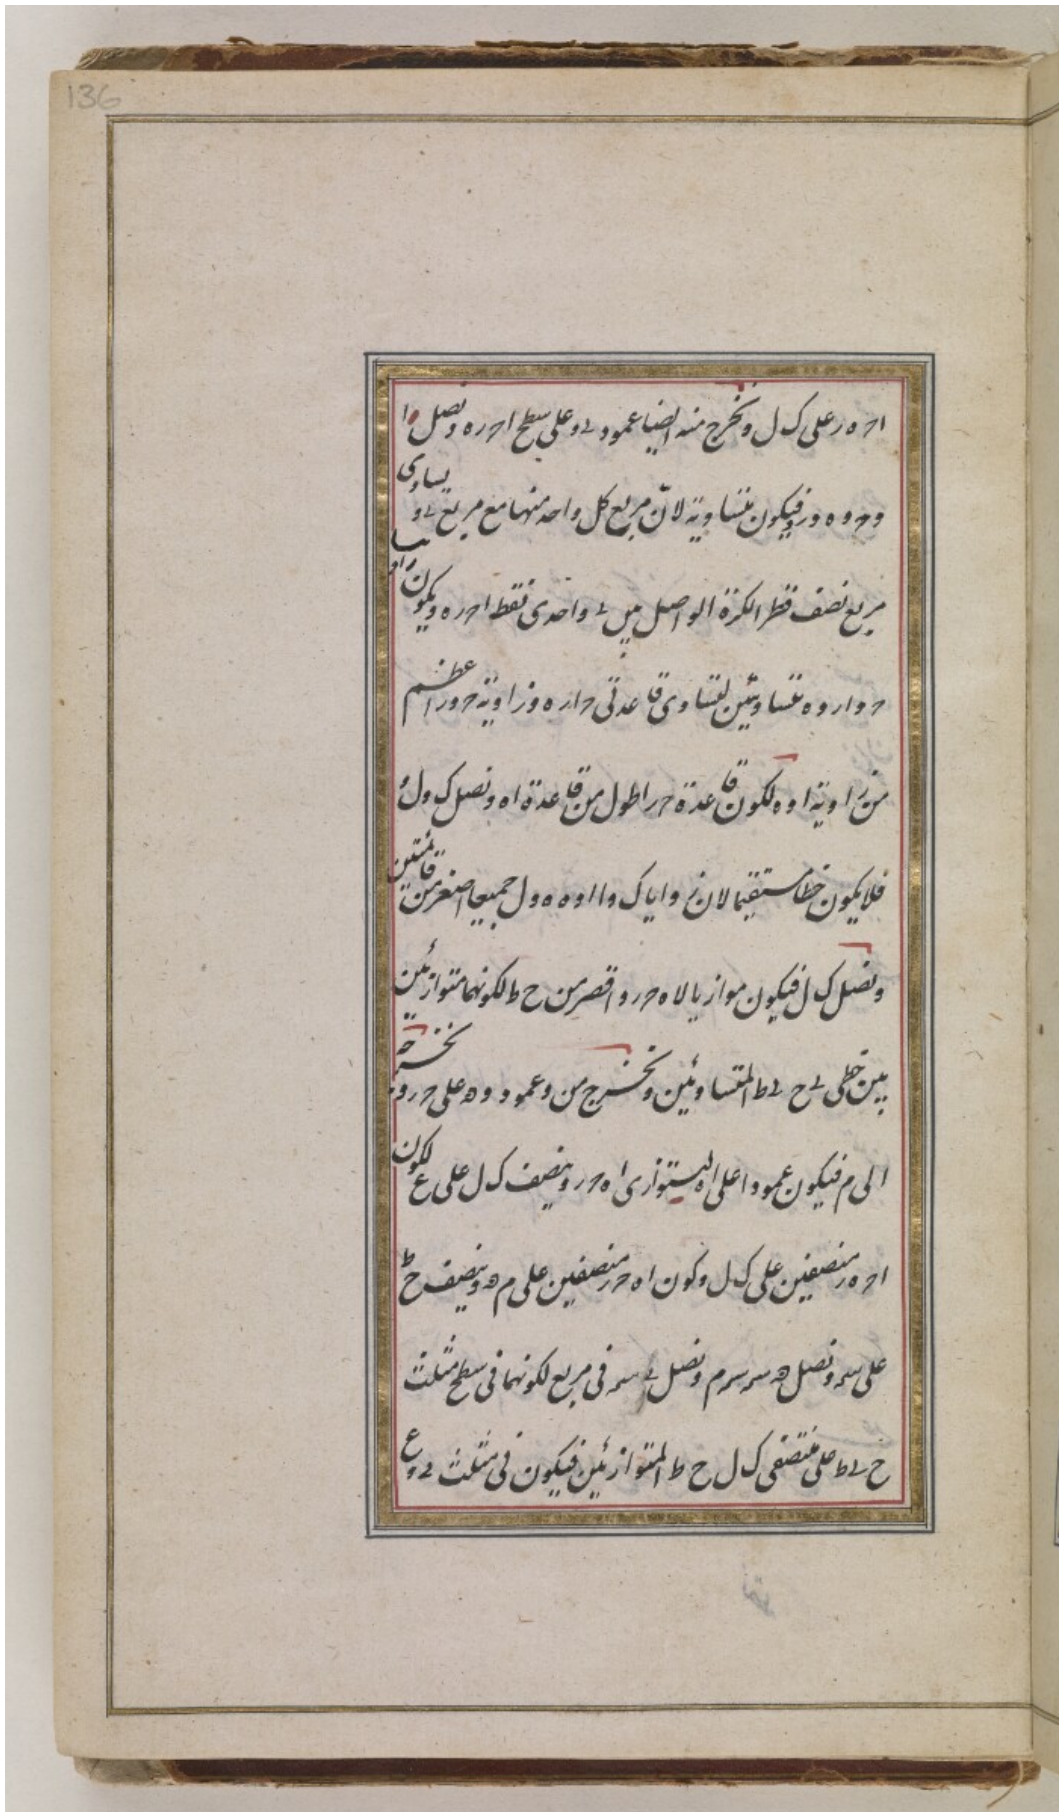 136
احه رعلى ک ل ونخرج منه ايضا عمود ى و على سطح احره ونصل ا
و حوه وروفيكون متساوية لان مربع كل واحد منها مع مربع ى و يساوى
مربع نصف قطر الكرة الواصل بين ى واحدى نقط احره ويكون
ح وا ر وه متساويتين لتساوى قاعدتى ح ا ره وزاوية ح ور اعظم
من زاوية ا وه لكون قاعدة ح ر اطول من قاعدة ا ه ونصل ک و ل و
فلا يكون خطا مستقيما لان زوايا ک وا ا وه ه ول جميعا اصغر من قائمتين
ونصل ک ل فيكون موازيا لا ه ح ر واقصر من ح ط لكونهما متوازيين
بين خطى ى ح ى ط المتساويين ونخرج من و عمود و ﻫ على ح ر ونخرجه
الى م فيكون عمودا على ا ه لتوازى ا ه ح ر وينصف ک ل على ع لكون
ا ح ه ر منصفين على ک ل وكون ا ه ح ر منصفين على م ﻫ وينصف ح ط
على سه ونصل ﻫ سه سه م ونصل ى سه فى مربع لكونهما فى سطح مثلث
ح ى ط على منتصفى ک ل ح ط المتوازيين فيكون فى مثلث ى و ع